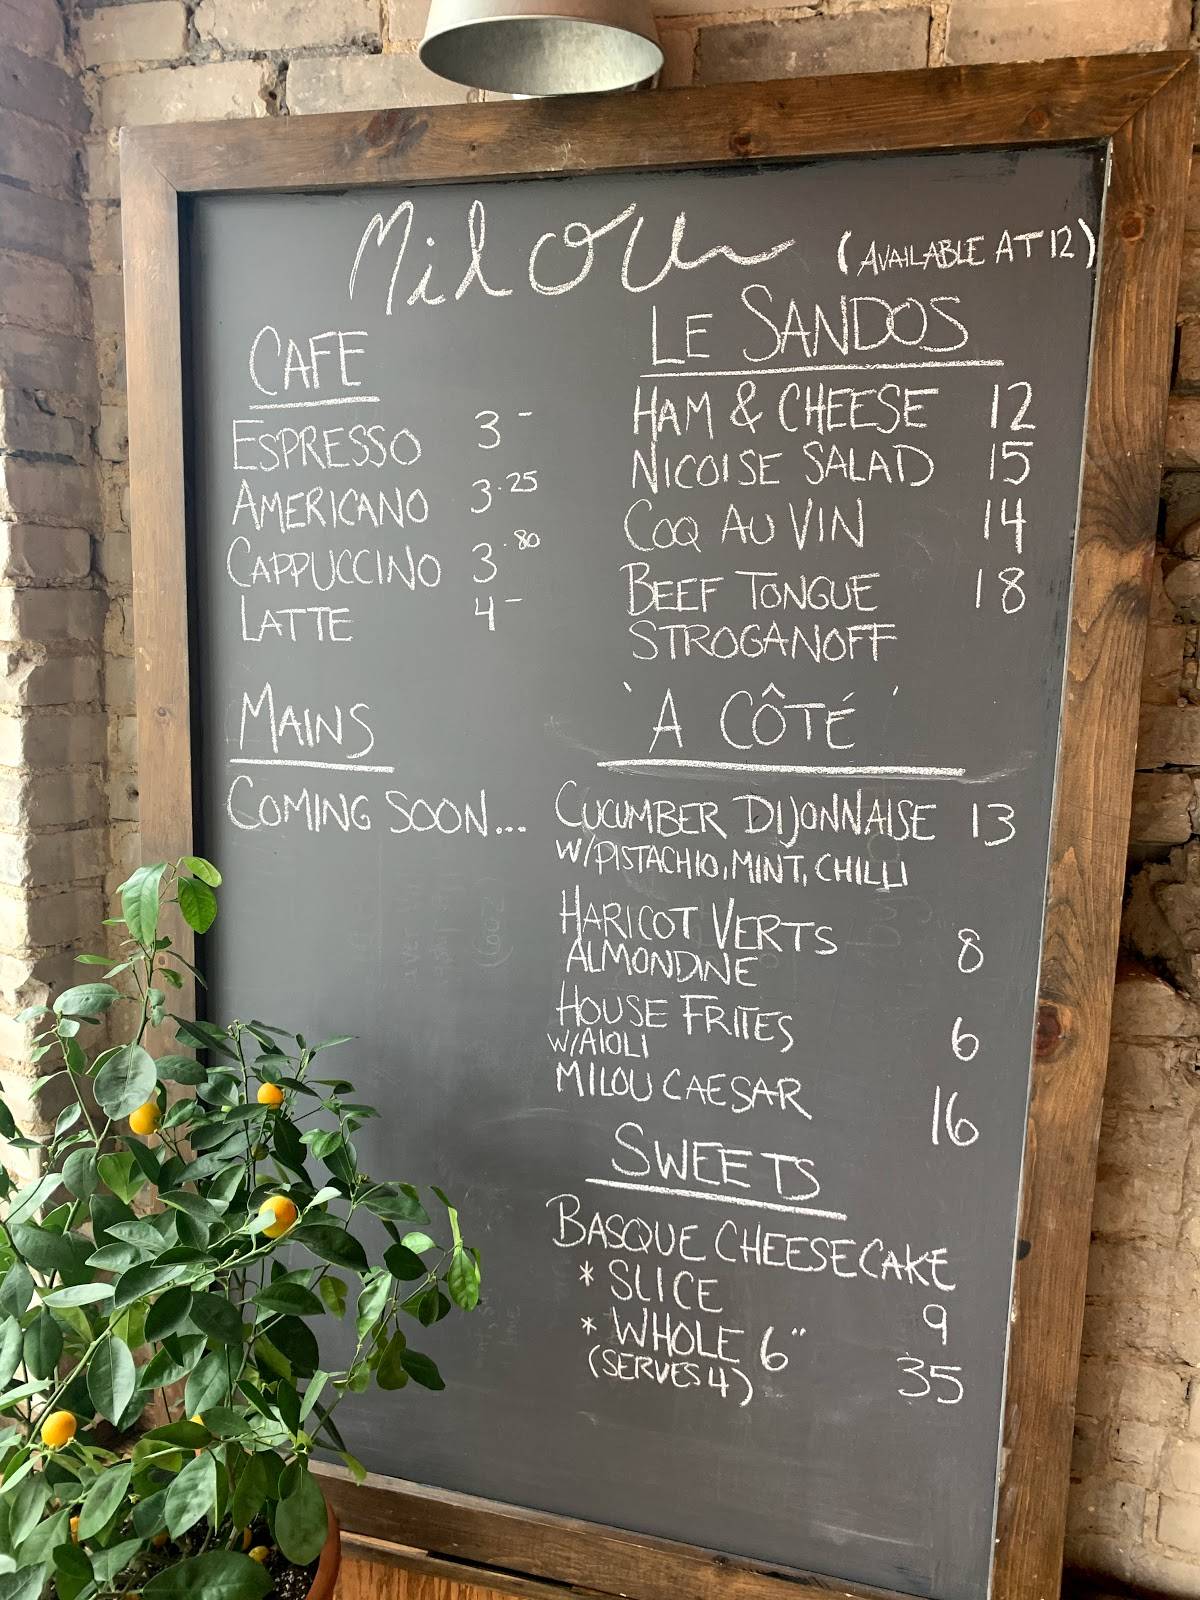 Milou
CAFE
ESPRESSO 3-
AMERICANO 3.25
CAPPUCCINO 3.80
LATTE 4-
MAINS
COMING SOON...
(AVAILABLE AT 12)
LE SANDOS
HAM & CHEESE 12
NICOISE SALAD 15
COQ AU VIN 14
BEEF TONGUE 18
STROGANOFF
'A CÔTÉ'
CUCUMBER DIJONNAISE 13
W/PISTACHIO, MINT, CHILLI
HARICOT VERTS
ALMONDINE 8
HOUSE FRITES
W/AIOLI 6
MILOU CAESAR 16
SWEETS
BASQUE CHEESECAKE
* SLICE 9
* WHOLE 6"
(SERVES 4) 35